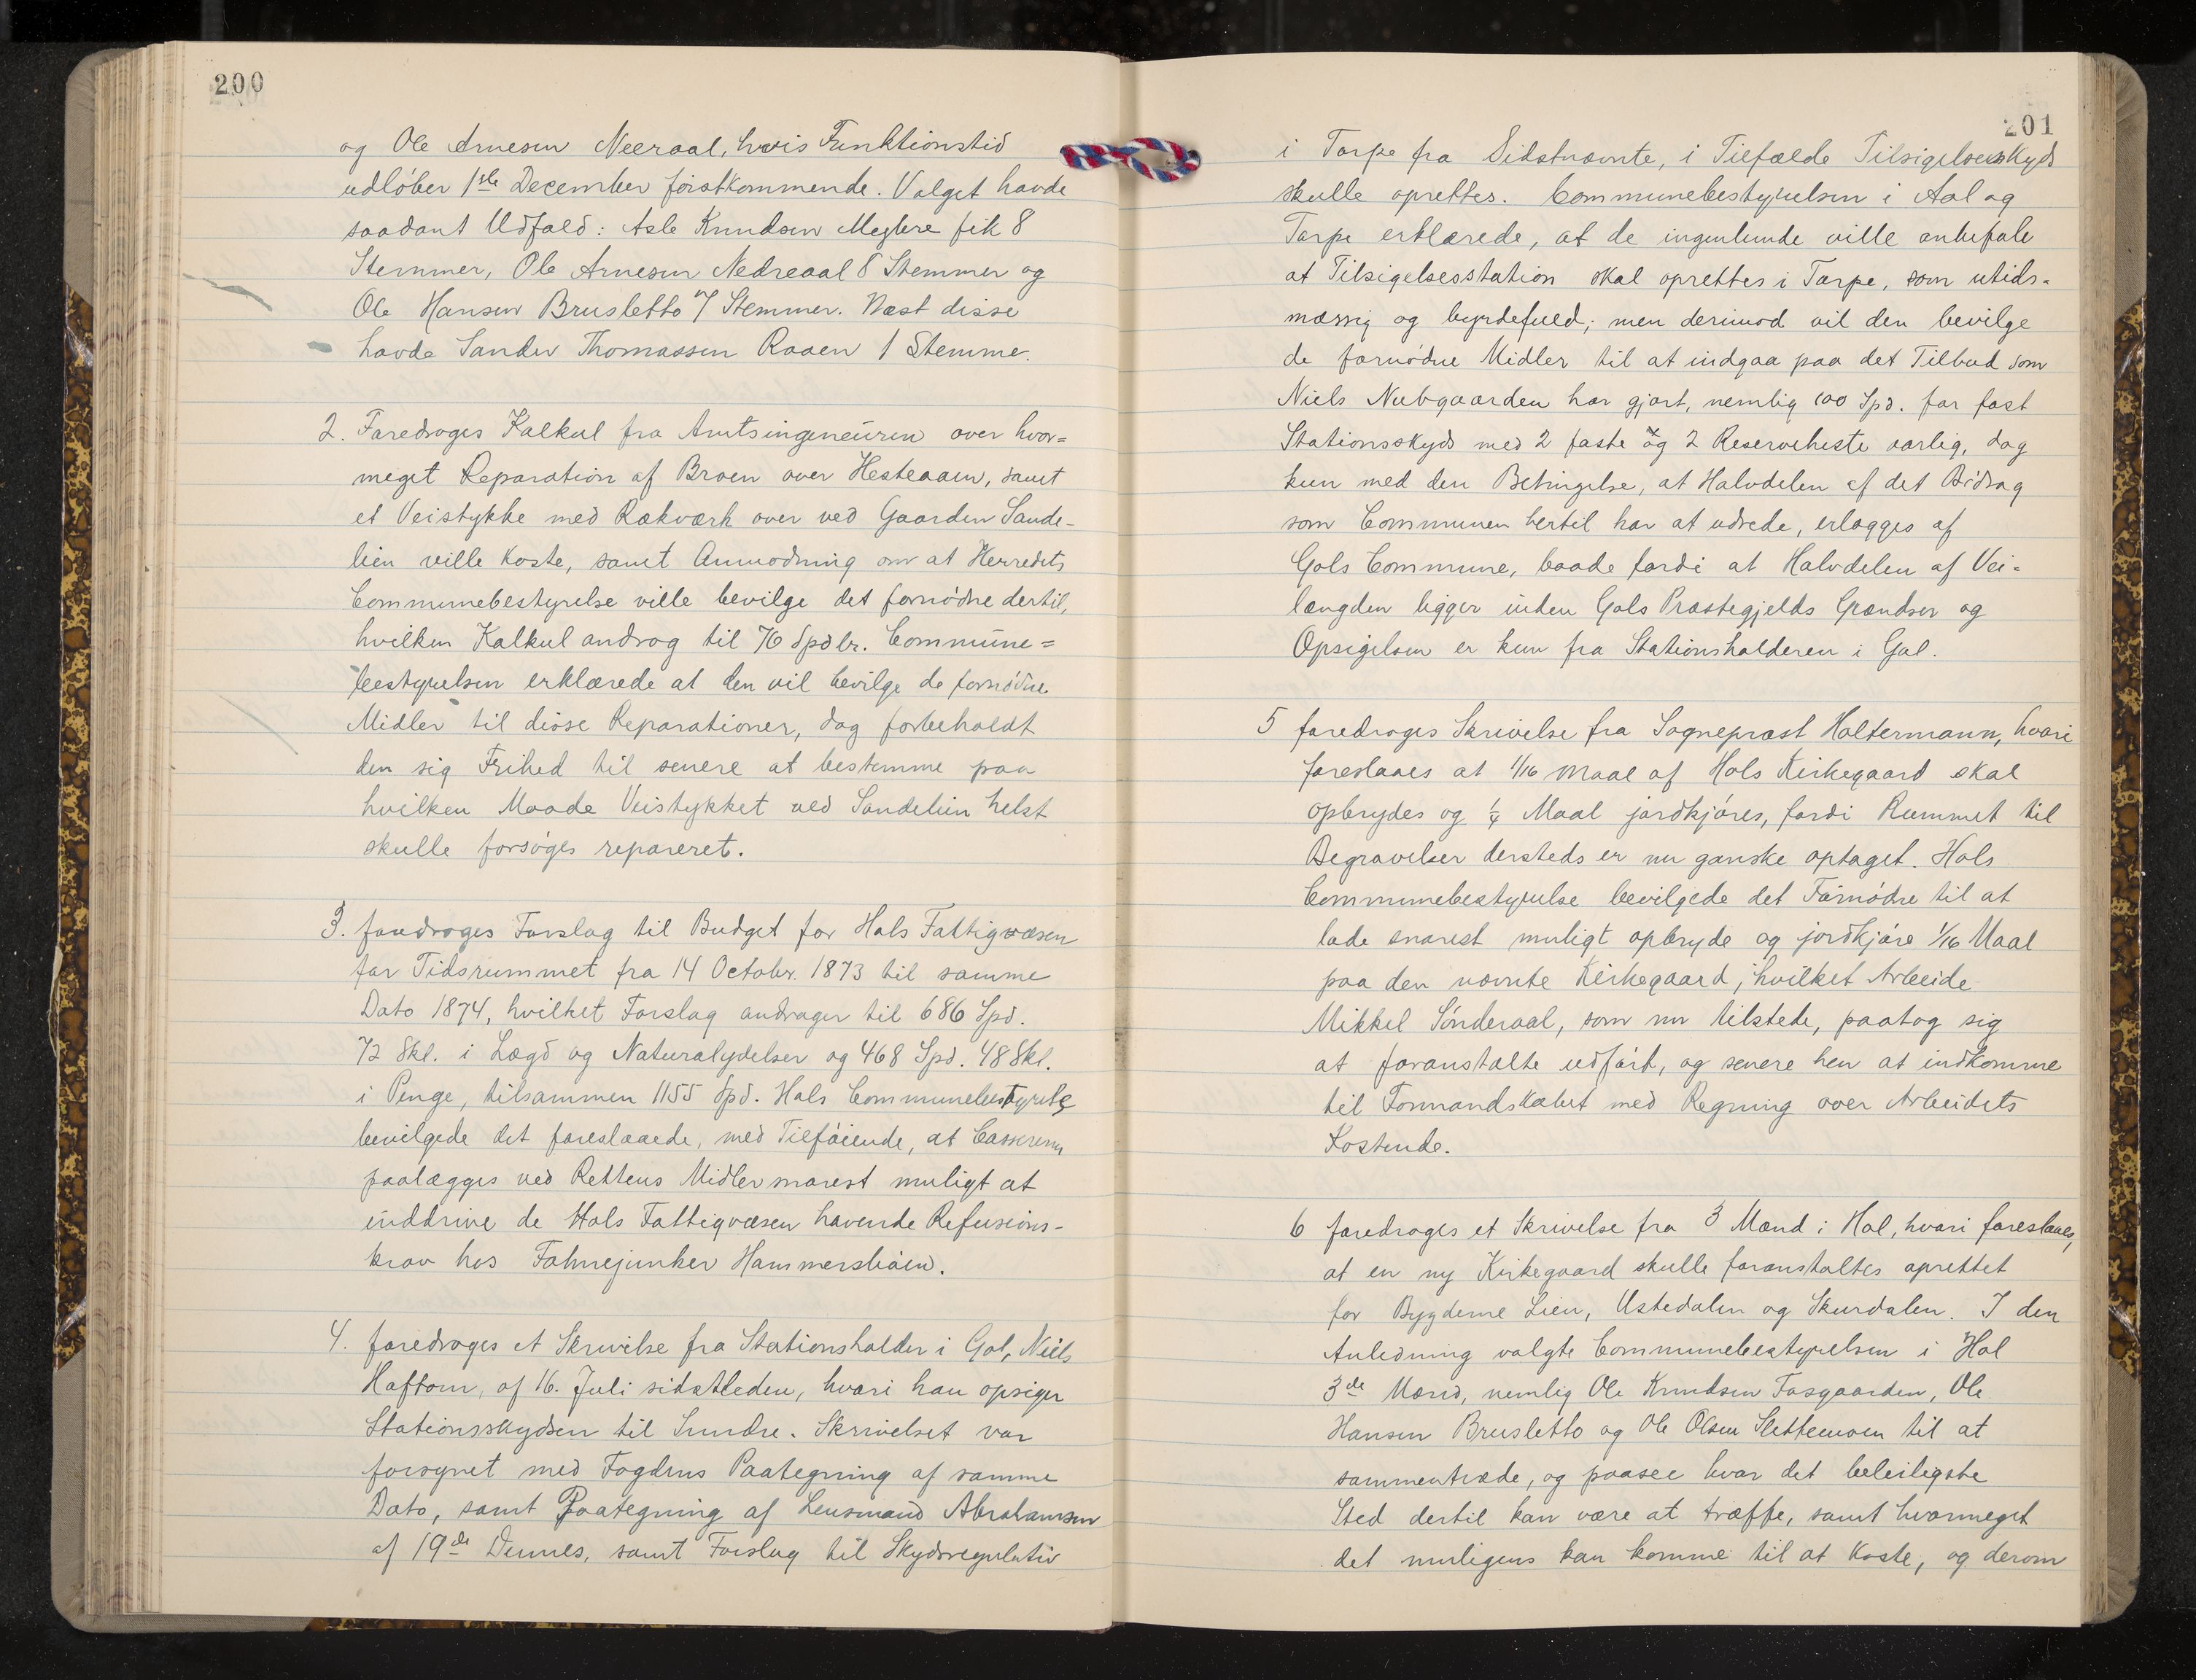 200
og Ole Arnesen Neeraal, hvis Funktionstid
udløber 1ste December førstkommende. Valget havde
saadant Udfald: Asle Knudsen Meglere fik 8
Stemmer, Ole Arnesen Nedreaal 8 Stemmer og
Ole Hansen Brusletto 7 Stemmer. Næst disse
havde Sander Thomassen Raaen 1 Stemme.
2. Foredroges Kalkul fra Amtsingeneuren over hvor=
meget Reparation af Broen over Hesteaaen, samt
et Veistykke med Rækværk over ved Gaarden Sande-
lien ville koste, samt Anmodning om at Herredets
Communebestyrelse ville bevilge det fornødne dertil,
hvilken Kalkul androg til 76 Spdlr. Commune=
bestyrelsen erklærede at den vil bevilge de fornødne
Midler til disse Reparationer, dog forbeholdt
den sig Frihed til senere at bestemme paa
hvilken Maade Veistykket ved Sandelien helst
skulle forsøges repareret.
3. foredroges Forslag til Budget for Hols Fattigvæsen
for Tidsrummet fra 14 Octobr. 1873 til samme
Dato 1874, hvilket Forslag andrager til 686 Spd.
72 Skl. i Lægd og Naturalydelser og 468 Spd. 48 Skl.
i Penge, tilsammen 1155 Spd. Hols Communebestyrelse
bevilgede det foreslaaede, med Tilføiende, at Casserern
paalægges ved Rettens Midler snarest muligt at
inddrive de Hols Fattigvæsen havende Refusions-
krav hos Fahnejunker Hammersbøen.
4. foredroges et Skrivelse fra Stationsholder i Gol, Niels
Haftorn, af 16. Juli sidstleden, hvori han opsiger
Stationsskydsen til Sundre. Skrivelset var
forsynet med Fogdens Paategning af samme
Dato, samt Paategning af Lensmand Abrahamsen
af 19de Dennes, samt Forslag til Skydsregulativ
201
i Torpe fra Sidstnævnte, i Tilfælde Tilsigelsesskyds
skulle oprettes. Communebestyrelsen i Aal og
Torpe erklærede, at de ingenlunde ville anbefale
at Tilsigelsesstation skal oprettes i Torpe, som utids-
mæssig og byrdefuld; men derimod vil den bevilge
de fornødne Midler til at indgaa paa det Tilbud som
Niels Nubgaarden har gjort, nemlig 100 Spd. for fast
Stationsskyds med 2 faste og 2 Reserveheste aarlig, dog
kun med den Betingelse, at Halvdelen af det Bidrag
som Communen hertil har at udrede, erlægges af
Gols Commune, baade fordi at Halvdelen af Vei=
længden ligger inden Gols Præstegjelds Grændser og
Opsigelsen er kun fra Stationsholderen i Gol.
5 foredroges Skrivelse fra Sognepræst Holtermann, hvori
foreslaaes at 1/16 Maal af Hols Kirkegaard skal
opbrydes og 1/4 Maal jordkjøres, fordi Rummet til
Begravelser dersteds er nu ganske optaget. Hols
Communebestyrelse bevilgede det Fornødne til at
lade snarest muligt opbryde og jordkjøre 1/16 Maal
paa den nævnte Kirkegaard, hvilket Arbeide
Mikkel Sønderaal, som nu tilstede, paatog sig
at foranstalte udført, og senere hen at indkomme
til Formandskabet med Regning over Arbeidets
Kostende.
6 foredroges et Skrivelse fra 3 Mænd i Hol, hvori foreslaaes,
at en ny Kirkegaard skulle foranstaltes oprettet
for Bygderne Lien, Ustedalen og Skurdalen. I den
Anledning valgte Communebestyrelsen i Hol
3de Mænd, nemlig Ole Knudsen Fosgaarden, Ole
Hansen Brusletto og Ole Olsen Slettemoen til at
sammentræde, og paasee hvor det beleiligste
Sted dertil kan være at træffe, samt hvormeget
det muligens kan komme til at koste, og derom